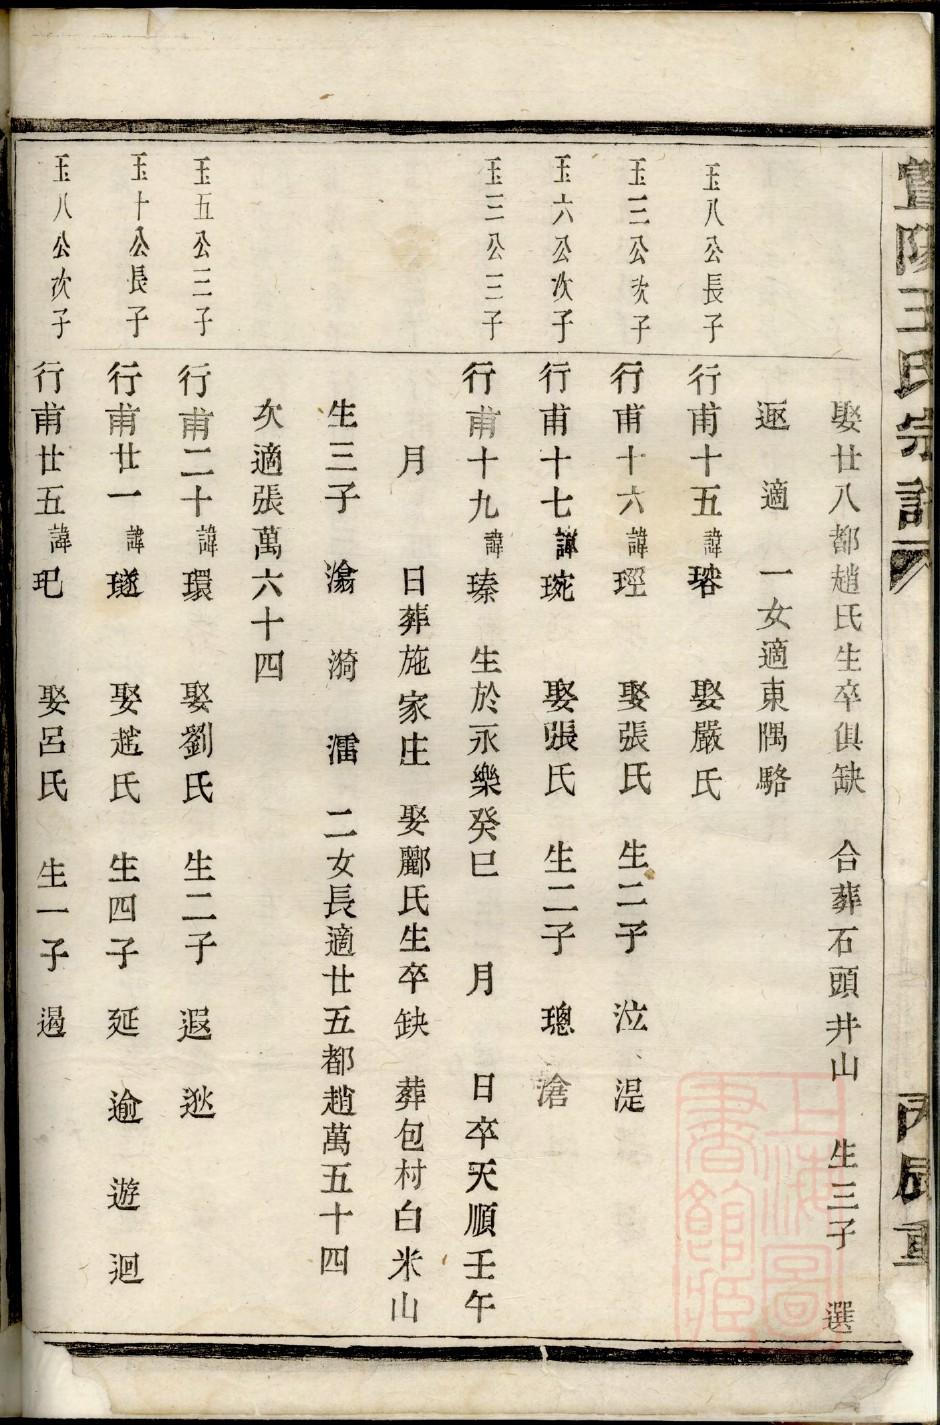 暨陽王氏宗譜
丙辰重
娶廿八都趙氏生卒俱缺 合葬石頭井山 生三子 選
逐 適 一女適東隅駱
玉八公長子 行甫十五諱瑢 娶嚴氏
玉三公次子 行甫十六諱琾 娶張氏 生二子 泣 湜
玉六公次子 行甫十七諱琬 娶張氏 生二子 璁 滄
玉三公三子 行甫十九諱瑧 生於永樂癸巳 月 日卒天順壬午
月 日葬施家庄 娶酈氏生卒缺 葬包村白米山
生三子 滃 漪 澑 二女長適廿五都趙萬五十四
次適張萬六十四
玉五公三子 行甫二十諱環 娶劉氏 生二子 遐 逖
玉十公長子 行甫廿一諱璲 娶趙氏 生四子 延 逾 遊 迴
玉八公次子 行甫廿五諱玘 娶呂氏 生一子 遏
上海圖書館藏